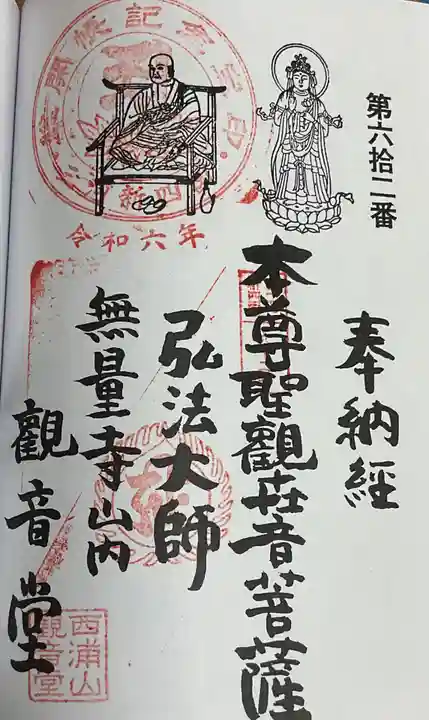 第六拾二番
奉納経
本尊聖観世音菩薩
弘法大師
無量寺山内
観音堂
令和六年
開帳記念宝印
四
西浦山
観音堂